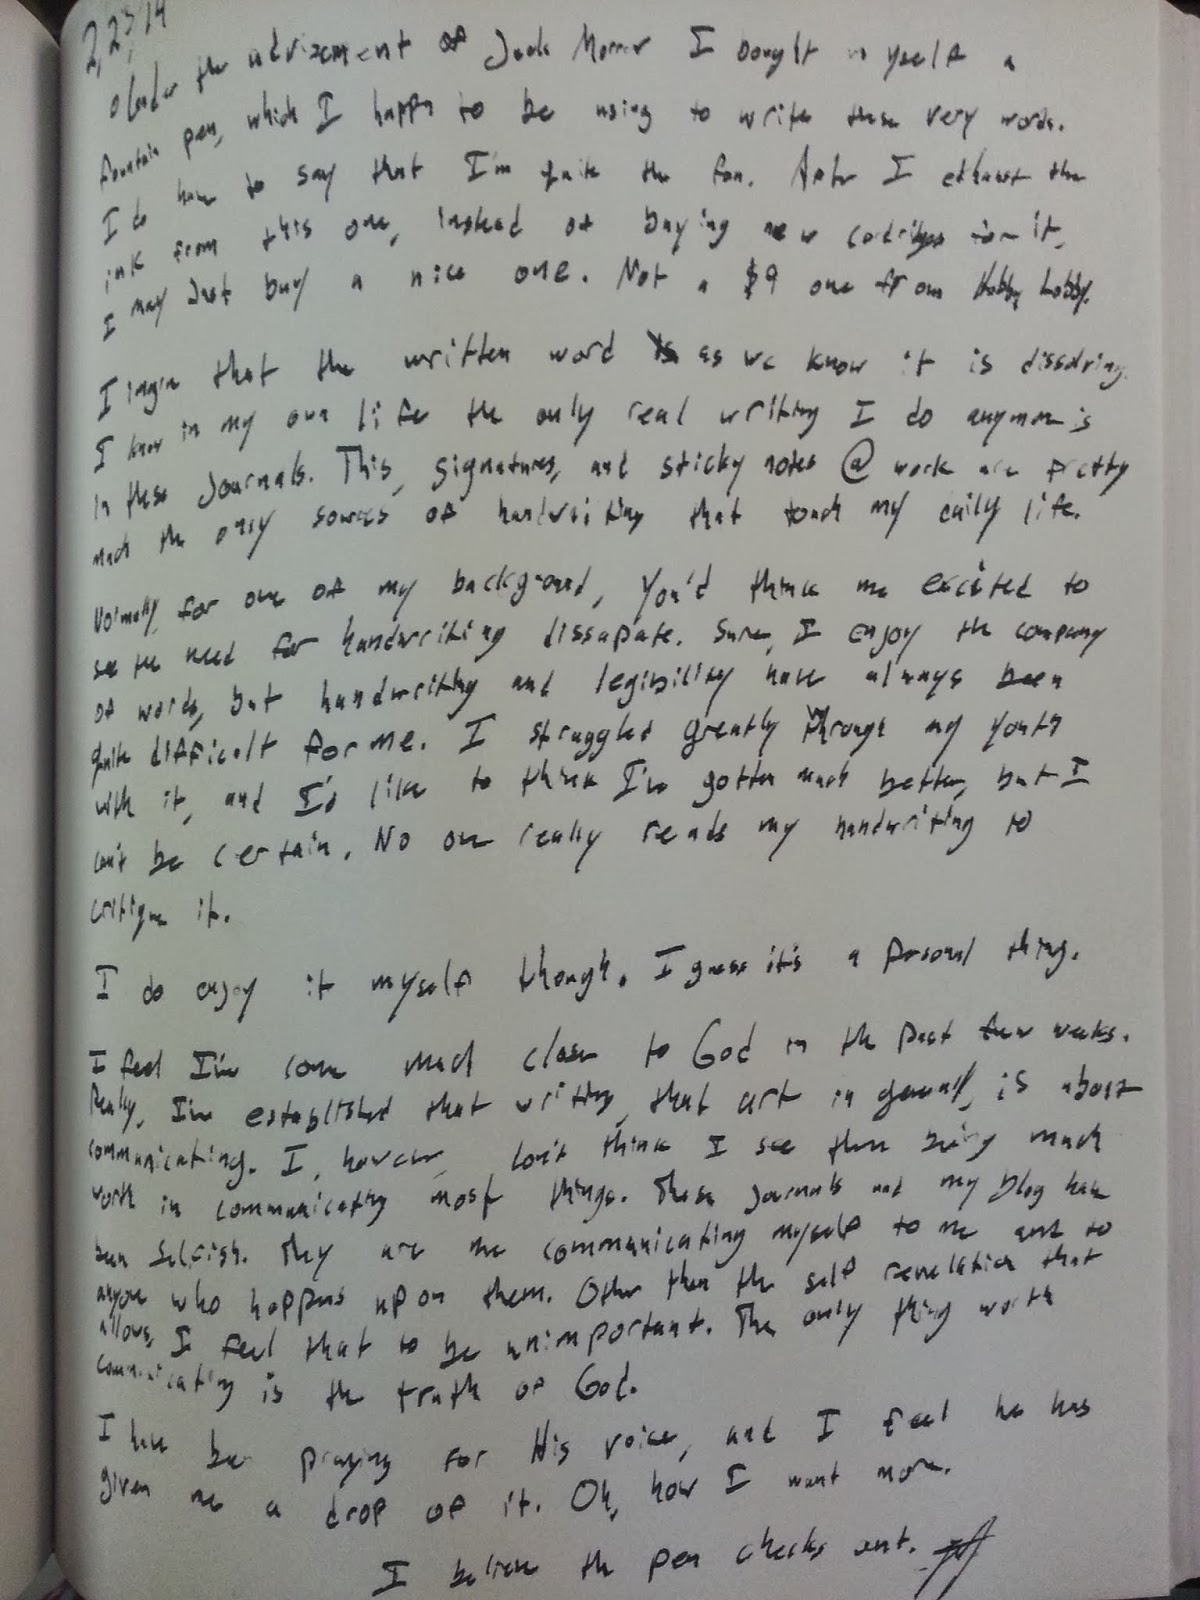 2,23,14
Under the advizement of Jack I bought myself a
fountain pen, which I happn to be using to write these very words.
I do have to say that I'm quite the fan. After I exhaust the
ink from this one, instead of buying new cartridges for it,
I may just buy a nice one. Not a $9 one from Hobby Lobby.
I imagine that the written word as we know it is dissolving.
I know in my own life the only real writing I do anymore is
in these Journals. This, signatures, and sticky notes @ work are pretty
much the only sources of handwriting that touch my daily life.
Normally, for one of my background, you'd think me excited to
see the need for handwriting dissapate. Sure, I enjoy the company
of words, but handwriting and legibility have always been
quite difficolt for me. I struggled greatly through my youth
with it, and I'd like to think I've gotten much better, but I
can't be certain. No one really reads my handwriting to
critique it.
I do enjoy it myself though. I guess it's a personal thing.
I feel I've come much closer to God in the past few weeks.
Really, I've established that writing, that art in general, is about
communicating. I, however, don't think I see there being much
worth in communicating most things. These journals and my blog have
been selfish. They are me communicating myself to me and to
anyone who happens upon them. Other then the self revelation that
allows, I feel that to be unimportant. The only thing worth
communicating is the truth of God.
I have been praying for His voice, and I feel he has
given me a drop of it. Oh, how I want more.
I believe the pen checks out.